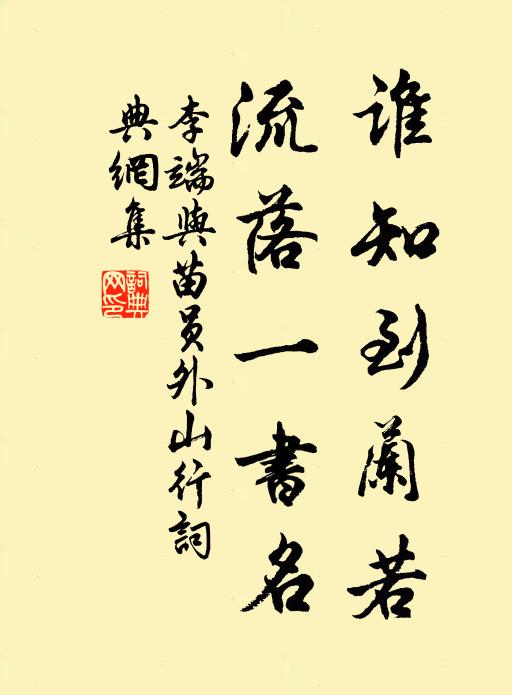 谁知到蘭若
流落一書名
李端與苗员外山行詞
典網集
詞典
网印